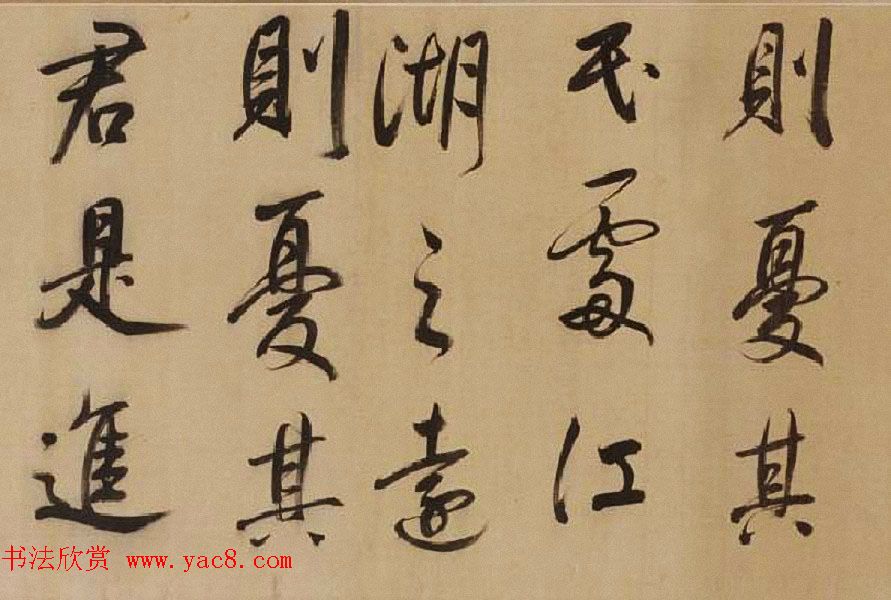 則憂其
民處江
湖之遠
則憂其
君是進
书法欣赏 www.yac8.com